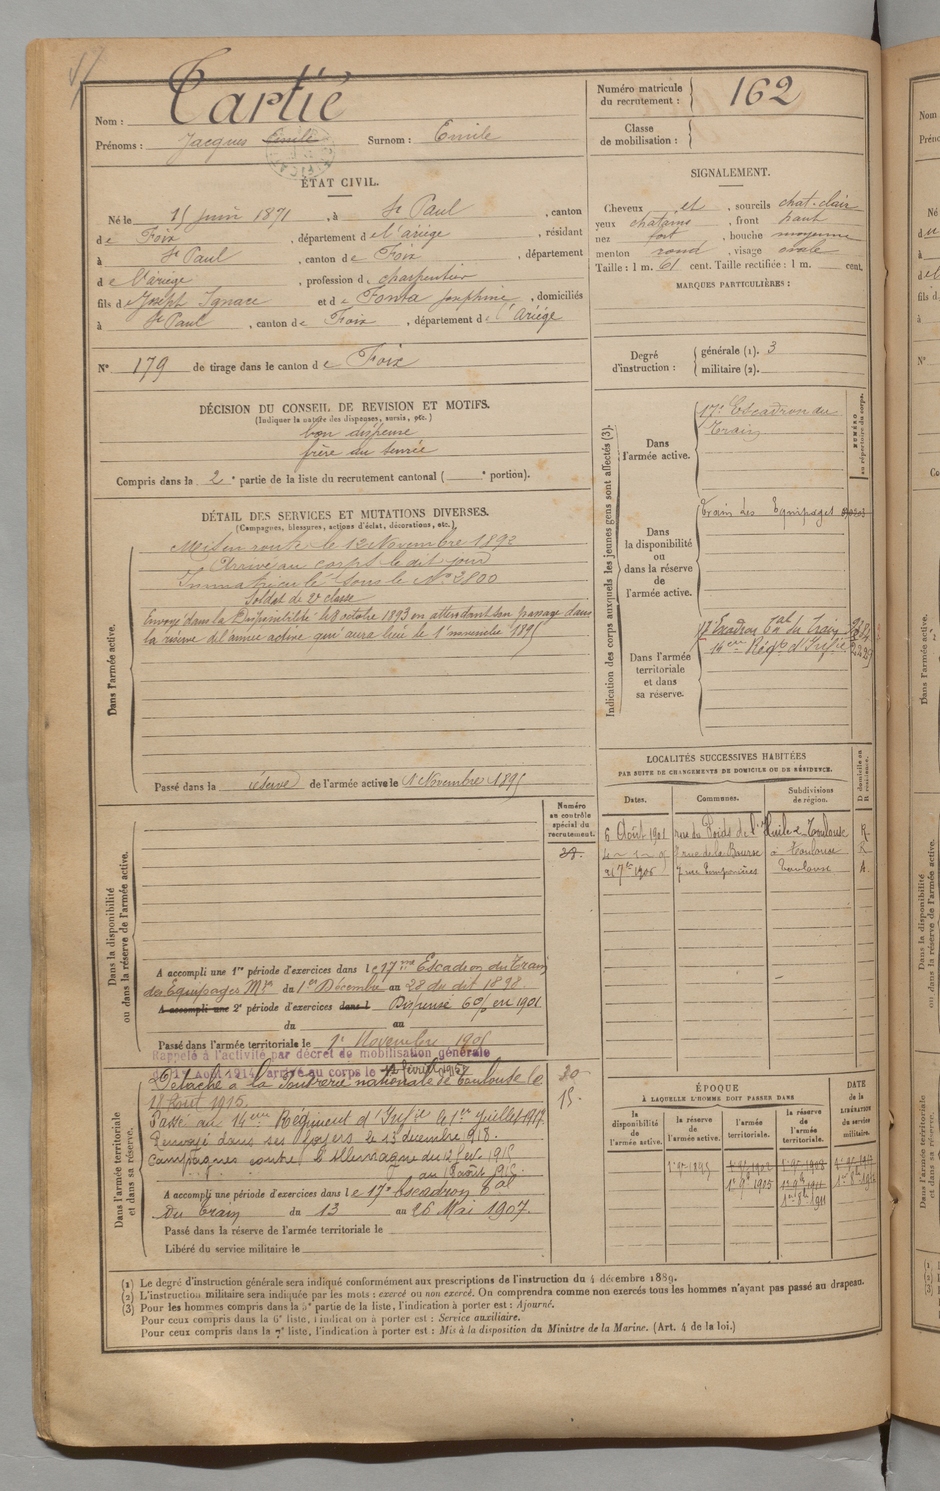 Nom : Cartié
Prénoms : Jacques Emile Surnom : Emile
Numéro matricule du recrutement : 162
Classe de mobilisation :
ÉTAT CIVIL.
Né le 15 juin 1871, à St Paul, canton
de Foix, département de l'ariège, résidant
à St Paul, canton de Foix, département
de l'ariège, profession de charpentier
fils de Joseph Ignace et de Fonta Josephine, domiciliés
à St Paul, canton de Foix, département de l'Ariège
N° 179 de tirage dans le canton de Foix
SIGNALEMENT.
Cheveux et, sourcils chat-clair
yeux chatains, front haut
nez fort, bouche moyenne
menton rond, visage ovale
Taille : 1 m. 61 cent. Taille rectifiée : 1 m. cent.
MARQUES PARTICULIÈRES :
Degré d'instruction : générale (1). 3
militaire (2).
DÉCISION DU CONSEIL DE REVISION ET MOTIFS.
(Indiquer la nature des dispenses, sursis, etc.)
bon dispense
frère au service
Compris dans la 2e partie de la liste du recrutement cantonal ( e portion).
DÉTAIL DES SERVICES ET MUTATIONS DIVERSES.
(Campagnes, blessures, actions d'éclat, décorations, etc.)
Dans l'armée active.
Mis en route le 12 Novembre 1892
Arrivé au corps le dit jour
Immatriculé sous le N° 2800
Soldat de 2e classe
Envoyé dans la Disponibilité le 8 octobre 1893 en attendant son passage dans
la réserve de l'armée active qui aura lieu le 1er novembre 1895
Passé dans la réserve de l'armée active le 1 Novembre 1895
Indication des corps auxquels les jeunes gens sont affectés (3).
NUMÉRO au répertoire du corps.
Dans l'armée active.
17e Escadron du
Train
Dans la disponibilité ou dans la réserve de l'armée active.
Train des Equipages
Dans l'armée territoriale et dans sa réserve.
17e Escadron Tal du Train
14eme Régt d'Infie
LOCALITÉS SUCCESSIVES HABITÉES
PAR SUITE DE CHANGEMENTS DE DOMICILE OU DE RÉSIDENCE.
Dates. Communes. Subdivisions de région. D domicile ou R résidence.
6 Août 1901 rue du Poids de l'Huile 2 Toulouse R
7 rue de la Bourse à Toulouse R
7bre 1906 Toulouse
Dans la disponibilité ou dans la réserve de l'armée active.
Numéro au contrôle spécial du recrutement.
A accompli une 1re période d'exercices dans le 17me Escadron du Train
des Equipages Mres du 1er Décembre au 28 du dit 1898.
A accompli une 2e période d'exercices dans l Dispensé en 1901
du au
Passé dans l'armée territoriale le 1er Novembre 1905
Rappelé à l'activité par décret de mobilisation générale
du 1er Août 1914, arrivé au corps le 12 février 1915
Dans l'armée territoriale et dans sa réserve.
Détaché à la Poudrerie nationale de Toulouse le
18 Aout 1915.
Passé au 14eme Régiment d'Infie le 1er Juillet 1917.
Renvoyé dans ses foyers le 13 décembre 918.
Campagnes contre l'Allemagne du 12 fév. 1915
au 18 août 1915.
20
15.
A accompli une période d'exercices dans le 17e Escadron Tal
du Train du 13 au 26 Mai 1907.
Passé dans la réserve de l'armée territoriale le
Libéré du service militaire le
ÉPOQUE
À LAQUELLE L'HOMME DOIT PASSER DANS
la disponibilité de l'armée active. la réserve de l'armée active. l'armée territoriale. la réserve de l'armée territoriale. DATE de la LIBÉRATION du service militaire.
1er 9bre 1895
1er 9bre 1905
(1) Le degré d'instruction générale sera indiqué conformément aux prescriptions de l'instruction du 4 décembre 1889.
(2) L'instruction militaire sera indiquée par les mots : exercé ou non exercé. On comprendra comme non exercés tous les hommes n'ayant pas passé au drapeau.
(3) Pour les hommes compris dans la 5e partie de la liste, l'indication à porter est : Ajourné.
Pour ceux compris dans la 6e liste, l'indication à porter est : Service auxiliaire.
Pour ceux compris dans la 7e liste, l'indication à porter est : Mis à la disposition du Ministre de la Marine. (Art. 4 de la loi.)